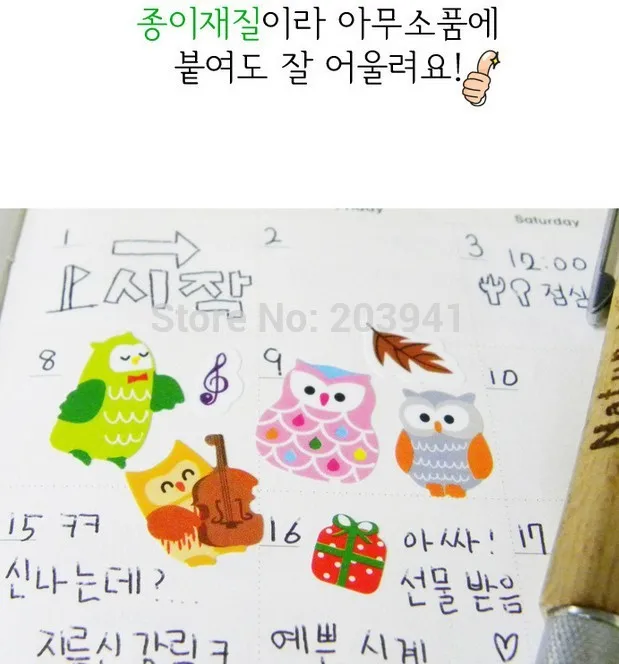 종이재질이라 아무소품에
붙여도 잘 어울려요!
Saturday
1 2 3 12:00
시작 점심
Store No: 203941
8 9 10
Natur
15 ㅋㅋ 16 아싸! 17
신나는데?.... 선물 받음
지름신 강림ㅋ 예쁜 시계 ♡